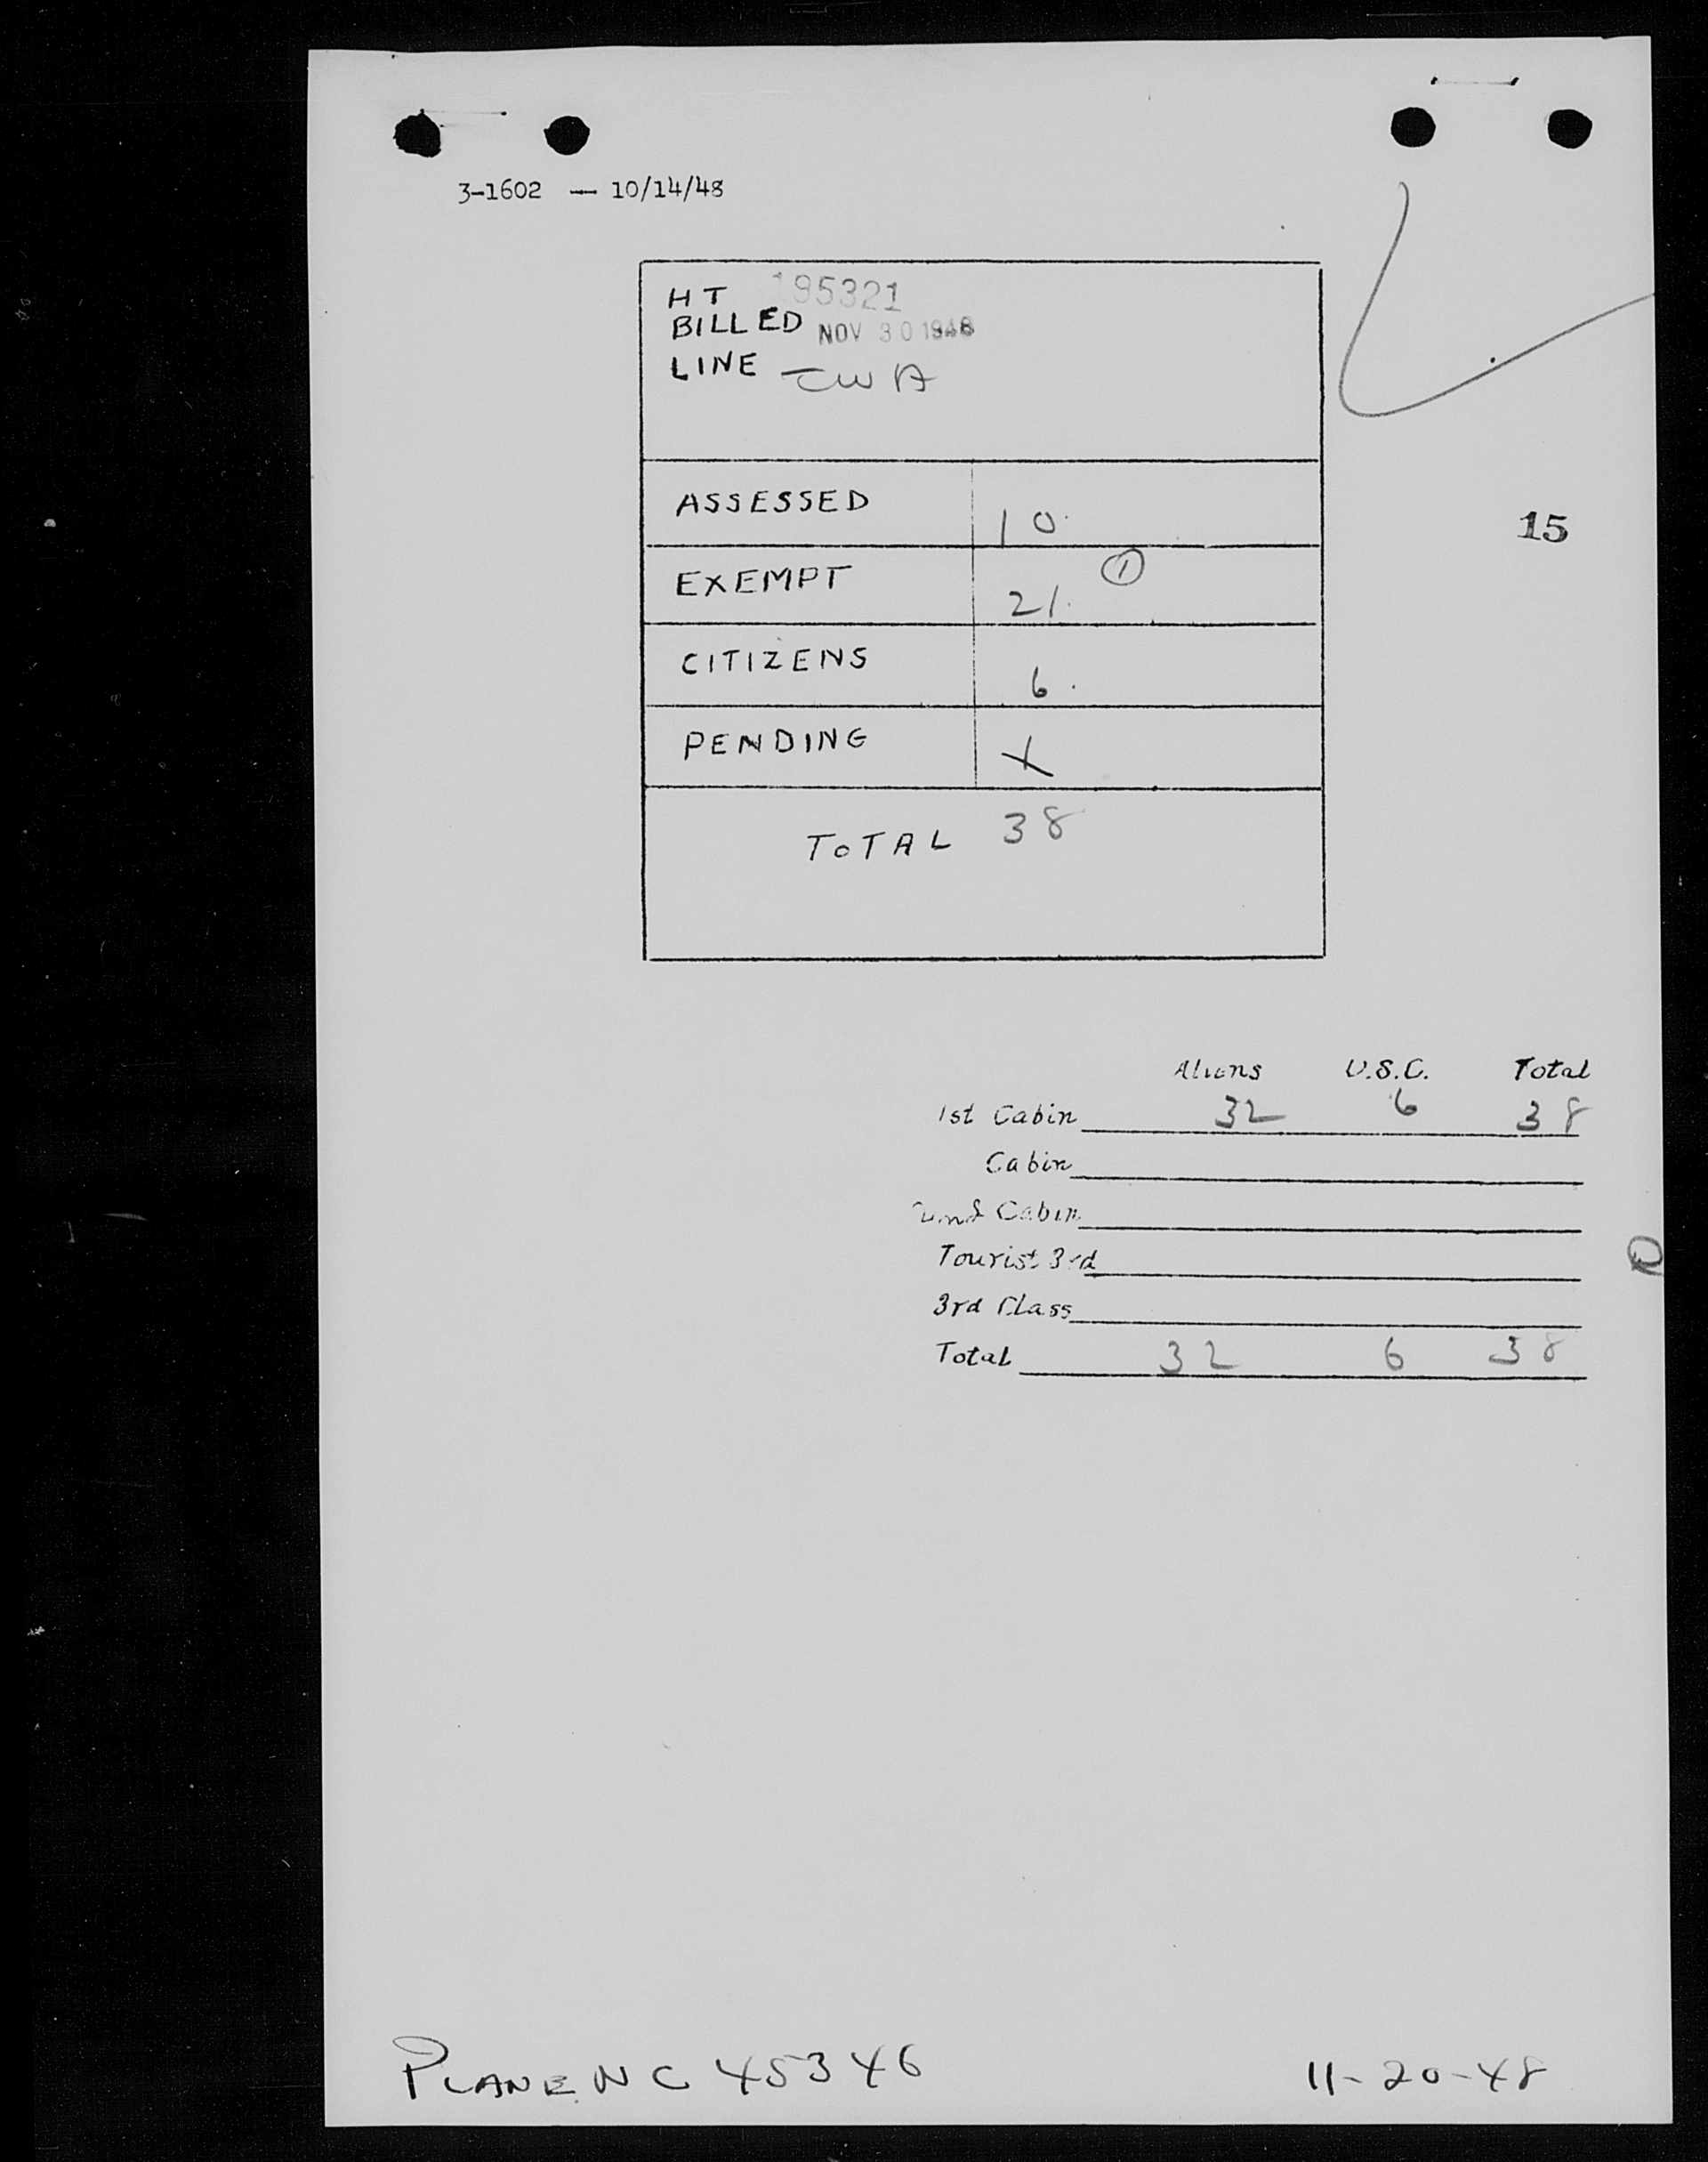 3-1602 — 10/14/48
HT 195321
BILLED NOV 30 1948
LINE TWA
ASSESSED 10.
15
EXEMPT 21. 1
CITIZENS 6.
PENDING X
TOTAL 38
Aliens U.S.C. Total
1st Cabin 32 6 38
Cabin
2nd Cabin
Tourist 3rd
3rd Class
Total 32 6 38
PLANE NC 45346 11-20-48